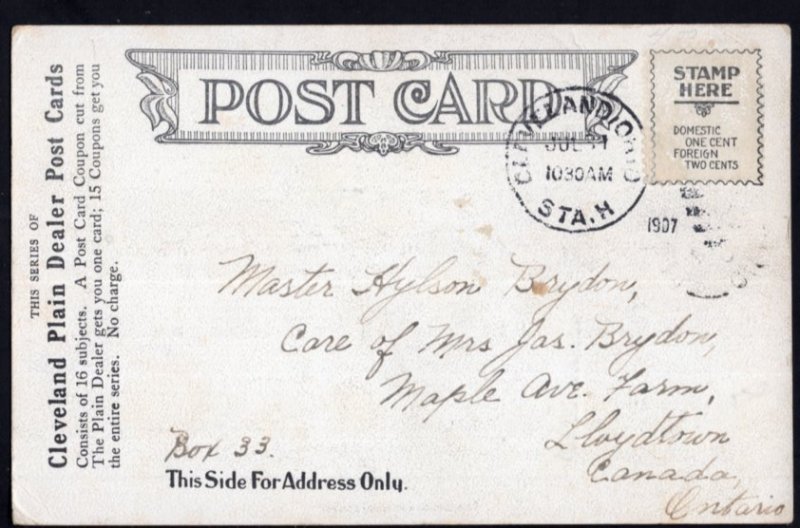 THIS SERIES OF
Cleveland Plain Dealer Post Cards
Consists of 16 subjects. A Post Card Coupon cut from
The Plain Dealer gets you one card; 15 Coupons get you
the entire series. No charge.
POST CARD
STAMP
HERE
DOMESTIC
ONE CENT
FOREIGN
TWO CENTS
CLEVELAND, OHIO
JUL
1030AM
STA. H
1907
Master Hylson Brydon,
Care of Mrs Jas. Brydon,
Maple Ave. Farm,
Lloydtown
Canada,
Ontario
Box 33.
This Side For Address Only.